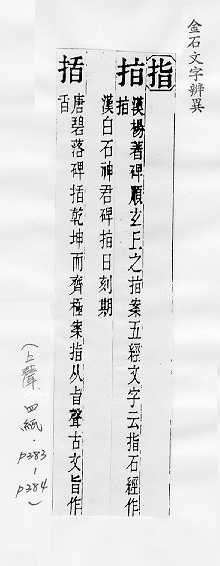 金石文字辨異
指
拍 漢楊著碑順玄丘之拍案五經文字云指石經作
拍
漢白石神君碑拍日刻期
括 唐碧落碑括乾坤而齊極案指从旨聲古文旨作
舌
(上聲 四紙．p383-p384)